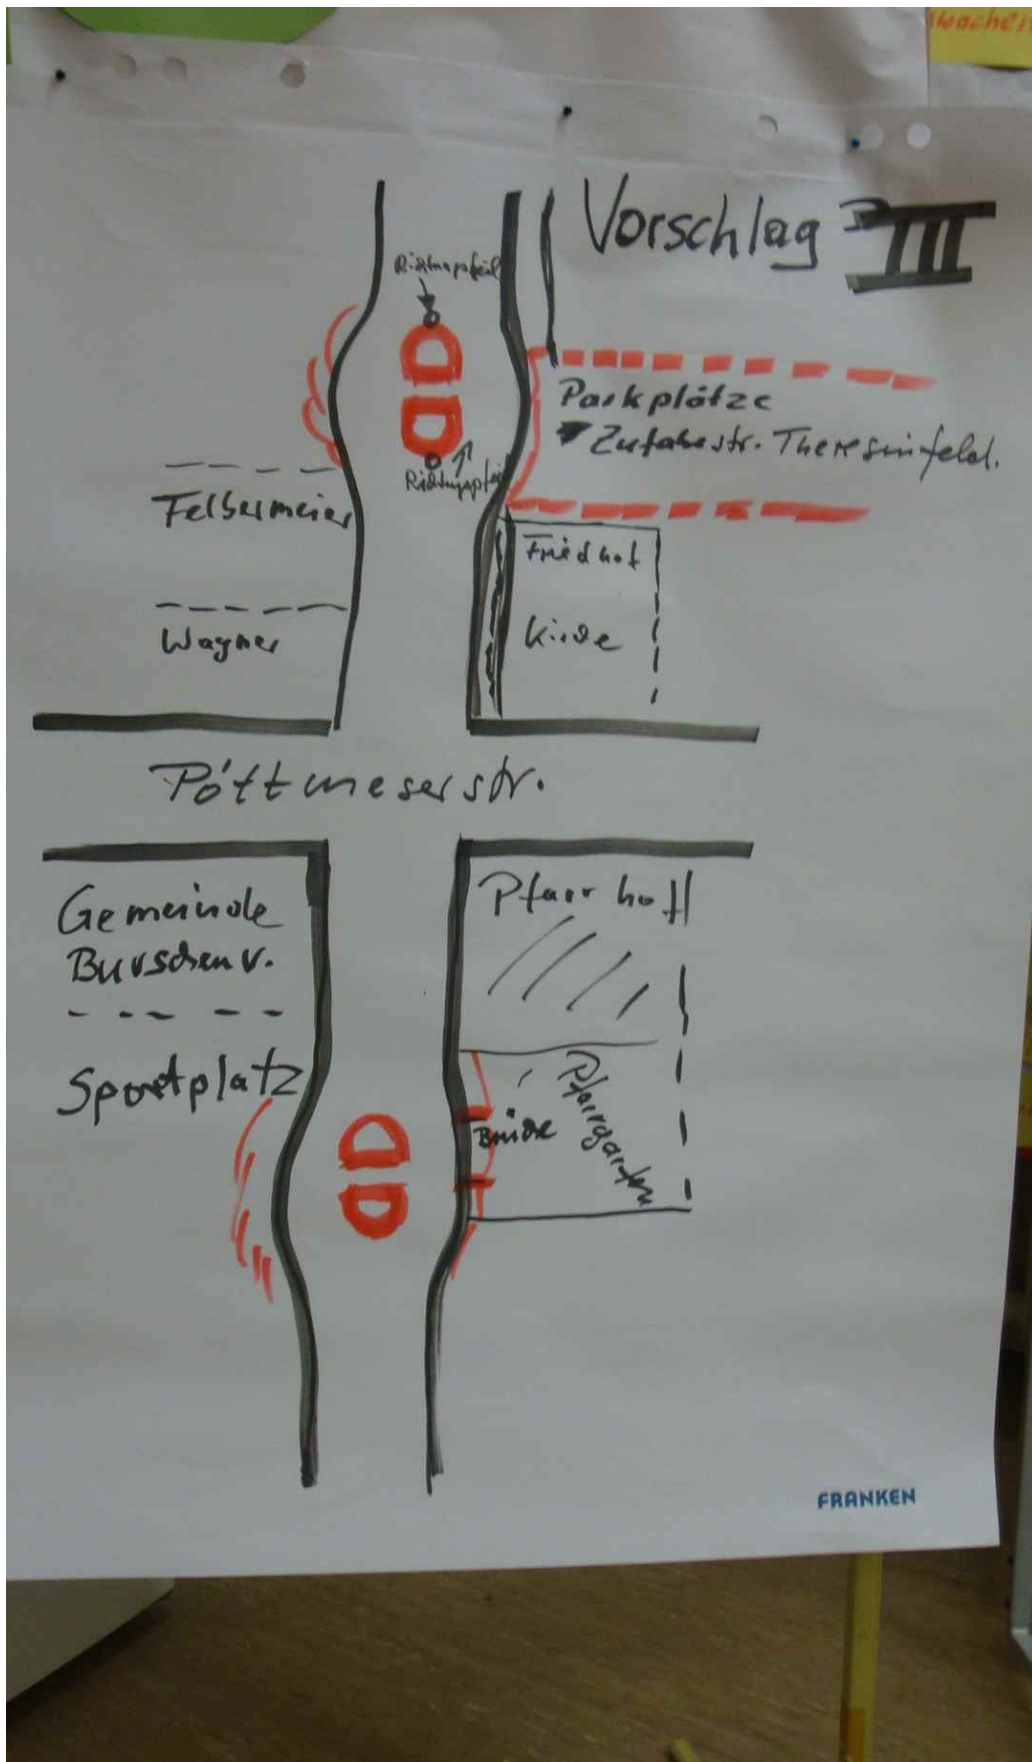 wachen
Vorschlag III
Richtungspfeil
Parkplätze
Zufahrtstr. Theresinfeld.
Richtungspfeil
Felbermeier
Friedhof
Wagner
Kirche
Pöttmeserstr.
Gemeinde
Burschenv.
Pfarrhoff
Sportplatz
Brücke
Pfarrgarten
FRANKEN